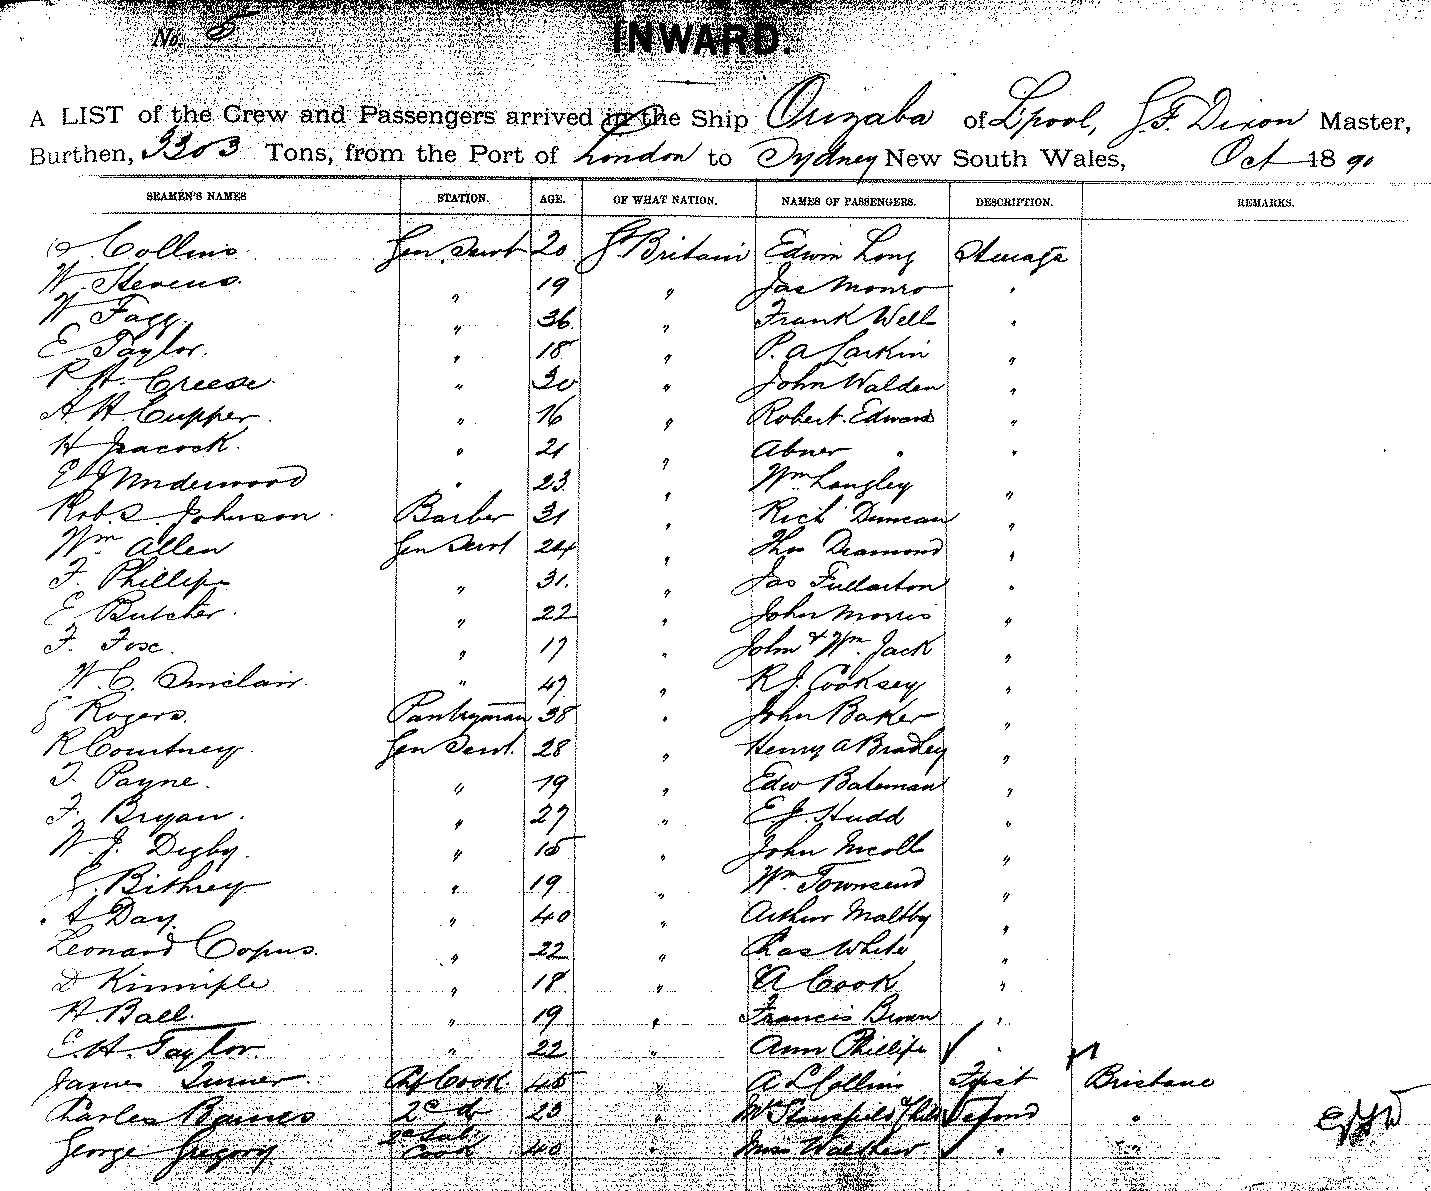 No. 5
INWARD.
A LIST of the Crew and Passengers arrived in the Ship Orizaba of Lpool, G.F. Dixon Master,
Burthen, 3303 Tons, from the Port of London to Sydney New South Wales, Oct 1890
SEAMEN'S NAMES STATION. AGE. OF WHAT NATION. NAMES OF PASSENGERS. DESCRIPTION. REMARKS.
Collins Gen Servt 20 Gt Britain Edwin Long Steerage
W. Stevens " 19 " Jas Monro "
W Fagg " 36 " Frank Well "
E Taylor " 18 " P. A Larkin "
R. H. Creese " 30 " John Walden "
A H Cupper " 16 " Robert Edward "
H Peacock " 21 " Abner " "
E J Underwood " 23 " Wm Langley "
Rob. S. Johnson Barber 31 " Rich Duncan "
Wm Allen Gen Servt 24 " Thos Diamond "
F. Phillips " 31 " Jas Fullarton "
E Butcher " 22 " John Morris "
F. Fox " 17 " John & Wm Jack "
W. C. Sinclair " 47 " R J. Cooksey "
Rogers Pantryman 38 " John Baker "
R Courtney Gen Servt 28 " Henry A Bradley "
T. Payne " 19 " Edw Bateman "
F. Bryan " 27 " E. J. Hudd "
W. J. Digby " 15 " John Nicoll "
Bithrey " 19 " Wm Townsend "
A Day " 40 " Arthur Maltby "
Leonard Copus " 22 " Chas White "
D Kinniple " 18 " A Cook "
H Ball " 19 " Francis Brown "
E. H. Taylor " 22 " Ann Phillips "
James Turner Cook 45 " A L Collins First Brisbane
Charles Baines 2nd do 23 " Mrs Stansfield Second "
George Gregory Cook 40 " Miss Walthew " "